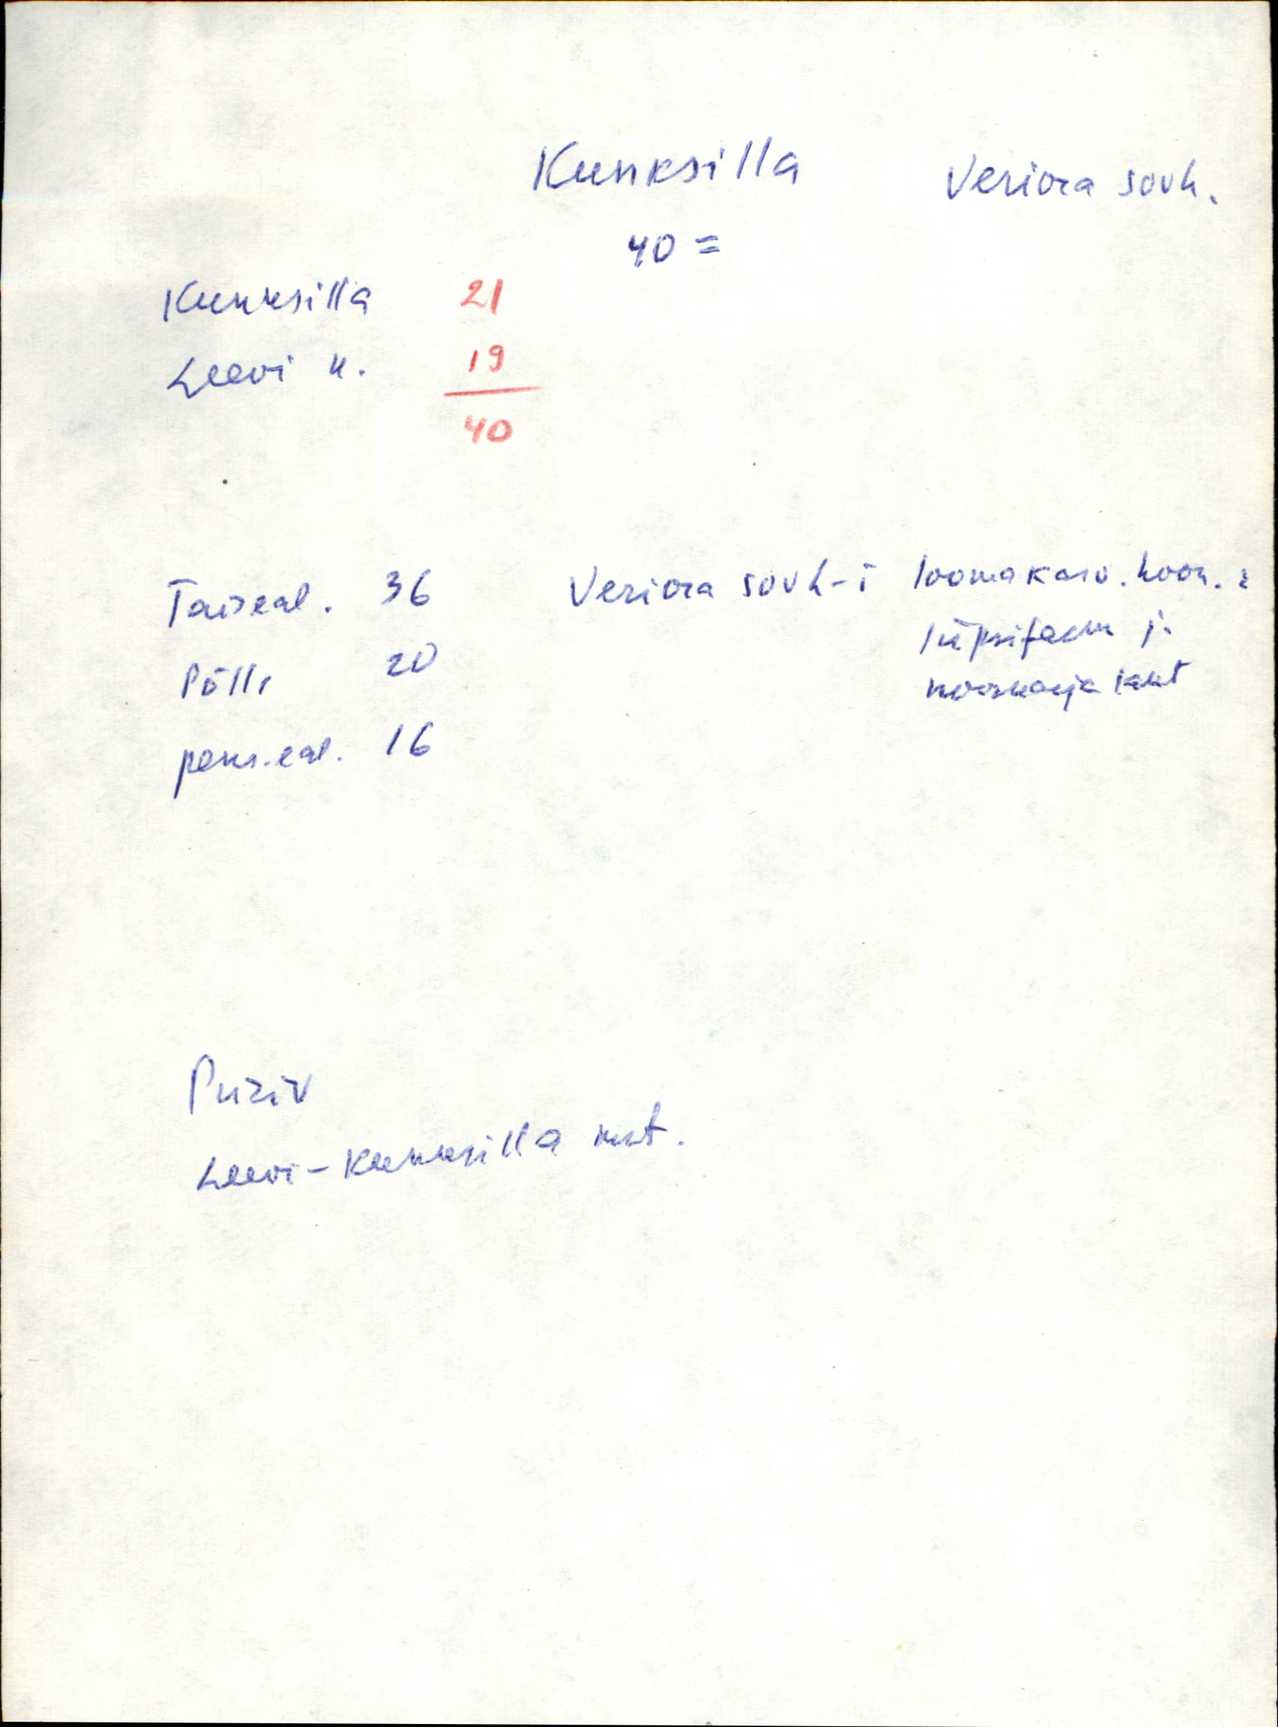 Kunksilla Veriora sovh.
40 =
Kunksilla 21
Leevi k. 19
40
Tööeal. 36 Veriora sovh-i loomakasv. hoon.:
Põll. 20 lüpsifarm j.
pens.eal. 16 noorkarja laut
Leevi-Kunksilla mnt.